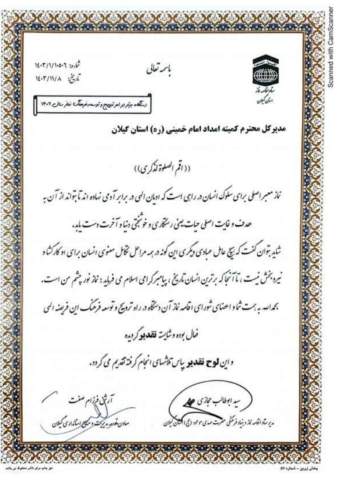 Scanned with CamScanner
باسمه تعالی
شماره: ۱۴۰۳/۱/۱۰۵۰۶
تاریخ: ۱۴۰۳/۱۱/۸
ستاد اقامه نماز
استان گیلان
مدیرکل محترم کمیته امداد امام خمینی (ره) استان گیلان
((اقم الصلوة لذکری))
نماز معبر اصلی برای سلوک انسان در راهی است که ادیان الهی در برابر آدمی نهاده اند تا بتواند از آن به
هدف و غایت اصلی حیات یعنی رستگاری و خوشبختی دنیا و آخرت دست یابد.
شاید بتوان گفت که هیچ عامل عبادی دیگری این گونه در همه مراحل تکامل معنوی انسان برای او کارگشا و
نیروبخش نیست، تا آنجا که برترین انسان تاریخ، پیامبر گرامی اسلام می فرماید: نماز نور چشم من است.
بحمدالله به همت شما و اعضای شورای اقامه نماز آن دستگاه در راه ترویج و توسعه فرهنگ این فریضه الهی
فعال بوده و شایسته تقدیر گردیده
و این لوح تقدیر بپاس تلاشهای انجام گرفته تقدیم می گردد.
سید ابوطالب حجازی
آرش فرزام صفت